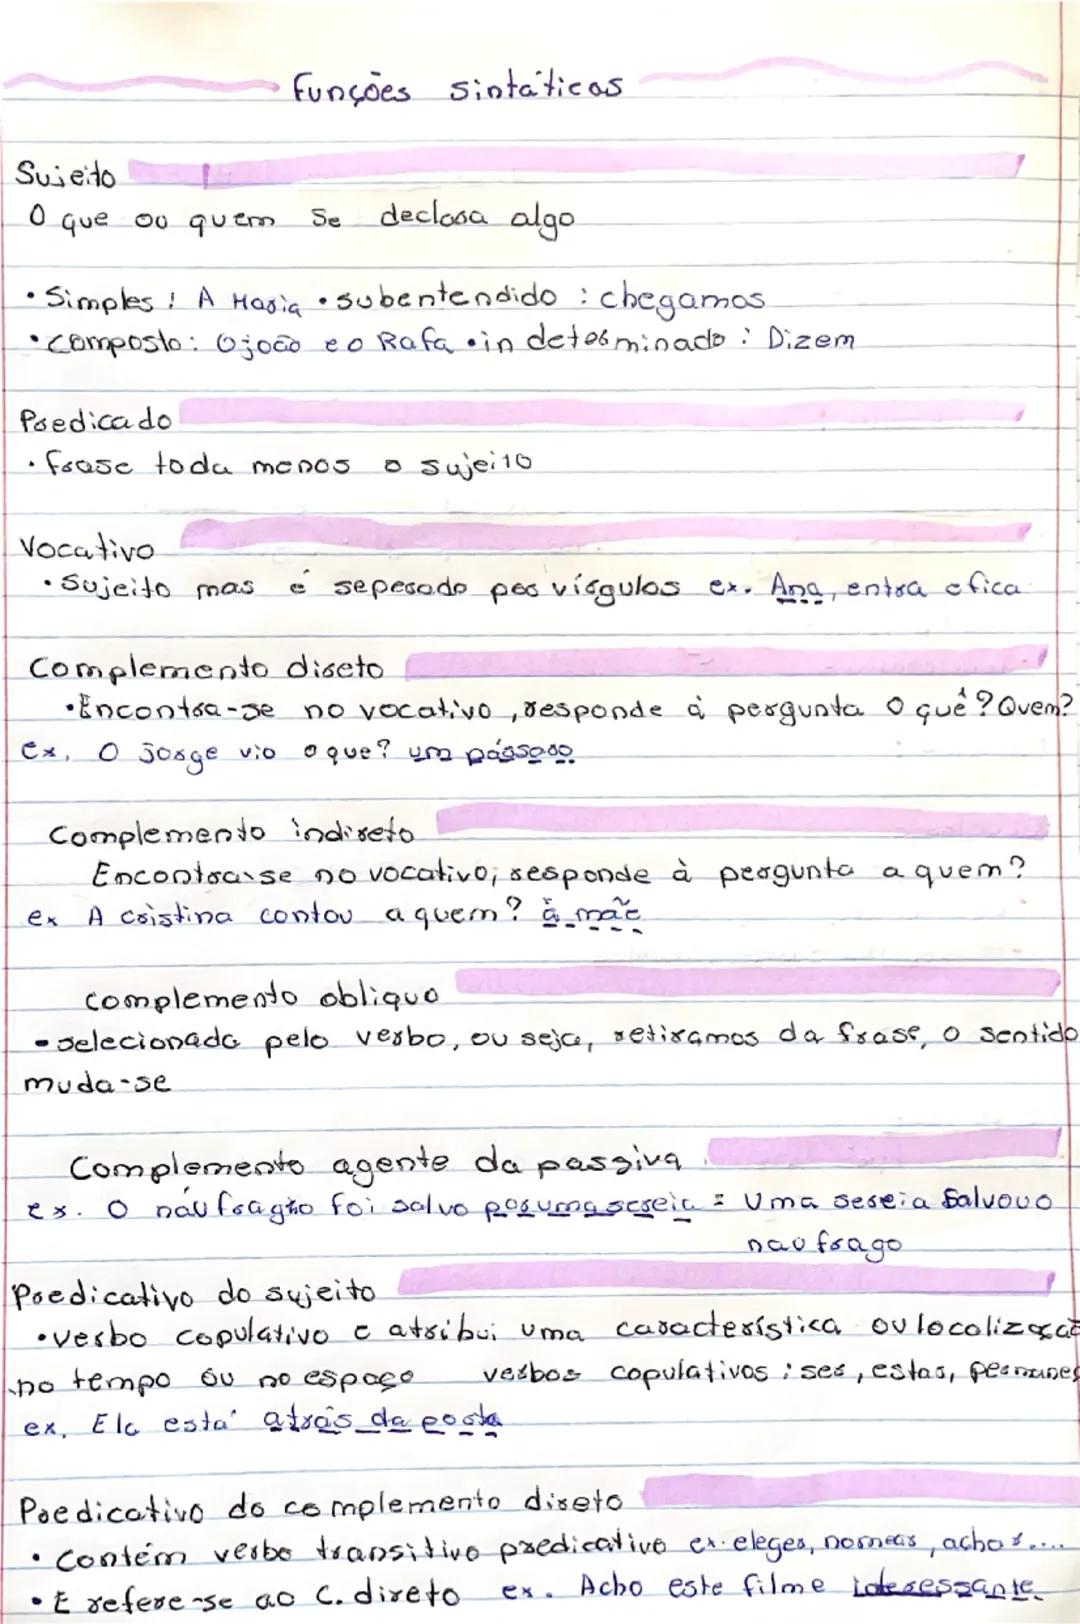 Funções sintáticas
Sujeito
O que ou quem se declara algo
• Simples: A Maria • subentendido: chegamos
• composto: O joão e o Rafa • indeterminado: Dizem
Predicado
• frase toda menos o sujeito
Vocativo
• Sujeito mas é seperado por vírgulas ex. Ana, entra e fica
Complemento direto
• Encontra-se no vocativo, responde à pergunta O quê? Quem?
ex. O jorge viu o que? um pássaro
Complemento indireto
Encontra-se no vocativo, responde à pergunta a quem?
ex A cristina contou a quem? à mãe
complemento obliquo
• selecionado pelo verbo, ou seja, retiramos da frase, o sentido
muda-se
Complemento agente da passiva
ex. O náufragio foi salvo por uma sereia = Uma sereia salvou o
naufrago
Predicativo do sujeito
• verbo copulativo e atribui uma característica ou localização
no tempo ou no espaço verbos copulativos: ser, estar, permaner
ex. Ela está atrás da porta
Predicativo do complemento direto
• Contém verbo transitivo predicativo ex. eleger, nomear, achar....
• E refere-se ao C. direto ex. Acho este filme interessante